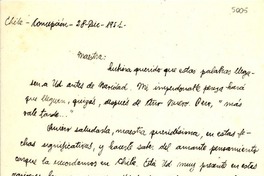 5005
Chile - Concepción - 28-Dic-1952.-
Maestra:
Hubiera querido que estas palabras llega-
sen a Ud antes de Navidad. Me imperdonable pereza hará
que lleguen, quizás, después de Año Nuevo. Pero, "más
vale tarde..."
Quiero saludarla, maestra queridísima, en estas fe-
chas significativas, y hacerle saber del amante pensamiento
conque la recordamos en Chile. Está Ud muy presente en estas